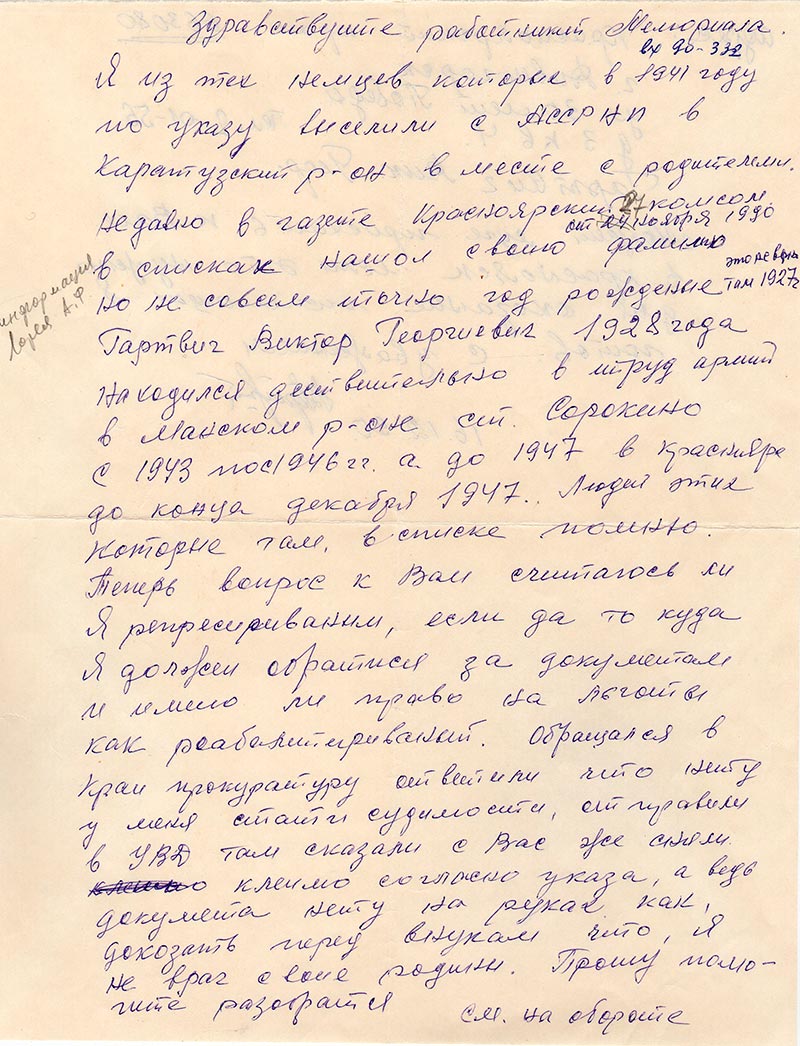 Здравствуйте работники Мемориала.
вх 90-332
Я из тех немцев которые в 1941 году
по указу выселили с АССРНП в
Каратузский р-он в месте с родителеми.
Недавно в газете Красноярский комсом.
от 27 ноября 1990
в списках нашол свою фамилию
но не совсем точно год рождение
там 1927г
Гартвич Виктор Георгиевич 1928 года
находился деств​ительно в труд армии
в Манском р-оне ст. Сорокино
с 1943 по 1946 гг. а до 1947 в Красняре
до конца декабря 1947. Людей этих
которые там, в списке помню.
Теперь вопрос к Вам считаюсь ли
Я репресирив​аним, если да то куда
Я должен обратися за документам
и имею ли право на льготы
как реабалитириваный. Обращался в
Край прокуратуру ответили что нету
у меня статти судимости, отправили
в УВД там сказали с Вас же сняли
клеймо согласно указа, а ведь
документа нету на руках как,
доказать перед внукам что, я
не враг своие родины. Прошу помо-
гите разобратся
см. на обороте
информация